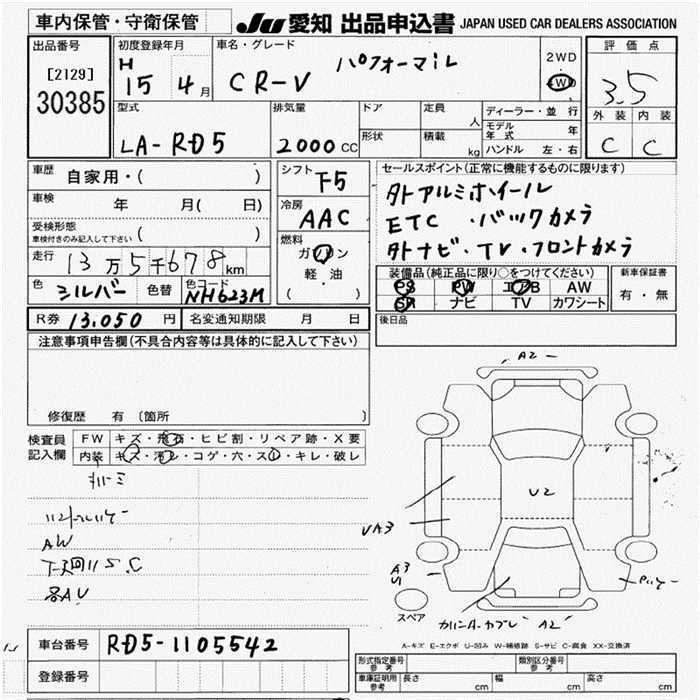 車内保管・守衛保管
JU 愛知 出品申込書 JAPAN USED CAR DEALERS ASSOCIATION
出品番号
[2129]
30385
初度登録年月
H
15 4 月
車名・グレード
CR-V パフォーマiL
2WD
4WD
評価点
3.5
外装 内装
C C
型式
LA-RD5
排気量
2000 CC
ドア
形状
定員
人
積載
kg
ディーラー・並行
モデル年式 年
ハンドル 左・右
車歴
自家用・( )
車検
年 月( 日)
受検形態
車検付きのみ記入して下さい ( )
走行
13万5千678km
色
シルバー
色替
色コード
NH623M
シフト
F5
冷房
AAC
燃料
ガソリン
軽・油
( )
セールスポイント(正常に機能するものに限ります)
外アルミホイール
ETC ・バックカメラ
外ナビ・TV・フロントカメラ
装備品(純正品に限り○をつけてください)
PS PW エアB AW
SR ナビ TV カワシート
新車保証書
有・無
後日品
R券 13,050 円
名変通知期限 月 日
注意事項申告欄(不具合内容等は具体的に記入して下さい)
修復歴 有 (箇所 )
検査員
記入欄
FW キズ・飛石・ヒビ割・リペア跡・X要
内装 キズ・汚レ・コゲ・穴・スレ・キレ・破レ
AW
下廻りS.C
各AU
A2
U2
UA3
A3
U1
A2
スペア
A-キズ E-エクボ U-凹み W-補修跡 S-サビ C-腐食 XX-交換済
車台番号 RD5-1105542
登録番号
形式指定番号
参考
類別区分番号
参考
車庫証明用
参考
長さ cm 幅 cm 高さ cm